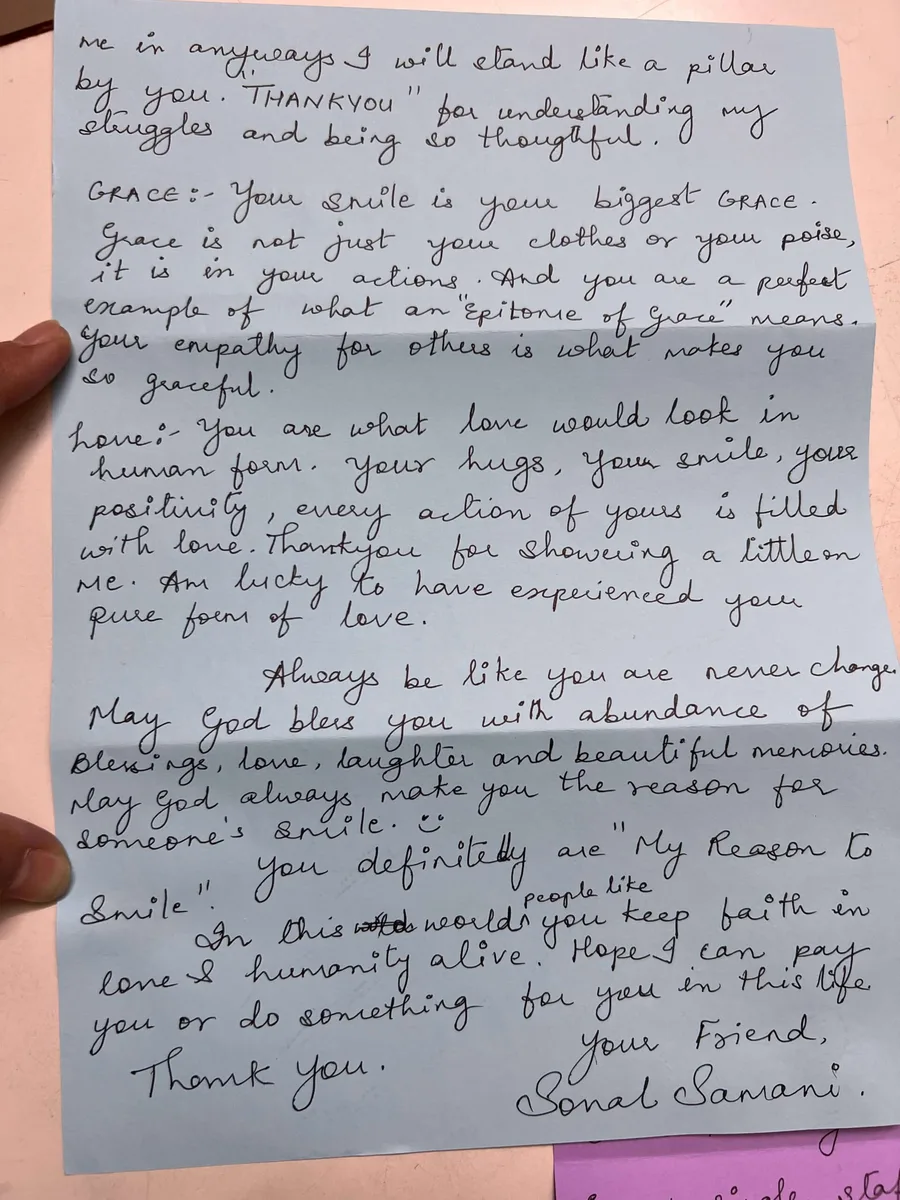 me in anyways I will stand like a pillar
by you. "THANKYOU" for understanding my
struggles and being so thoughtful.
GRACE:- Your smile is your biggest GRACE.
Grace is not just your clothes or your poise,
it is in your actions. And you are a perfect
example of what an "Epitome of Grace" means.
Your empathy for others is what makes you
so graceful.
Love:- You are what love would look in
human form. Your hugs, Your smile, your
positivity, every action of yours is filled
with love. Thankyou for showering a little on
me. Am lucky to have experienced your
pure form of love.
Always be like you are never change.
May God bless you with abundance of
Blessings, love, laughter and beautiful memories.
May God always make you the reason for
someone's smile.
You definitely are "My Reason to
Smile".
people like
In this world you keep faith in
love & humanity alive. Hope I can pay
you or do something for you in this life
Your Friend,
Thank you.
Sonal Samani.